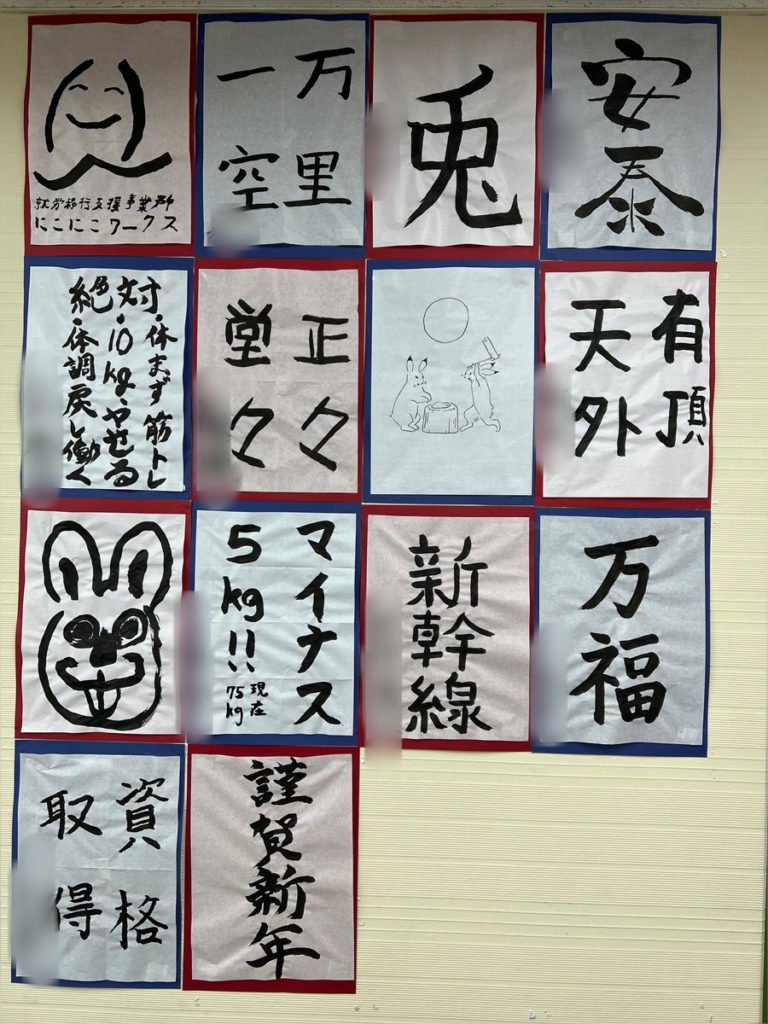 就労移行支援事業所
にこにこワークス
万里
一空
兎
安泰
絶対
・休まず筋トレ
・10kgやせる
・体調戻し働く
正々
堂々
有頂
天外
マイナス
5kg!!
現在
75kg
新幹線
万福
資格
取得
謹賀新年